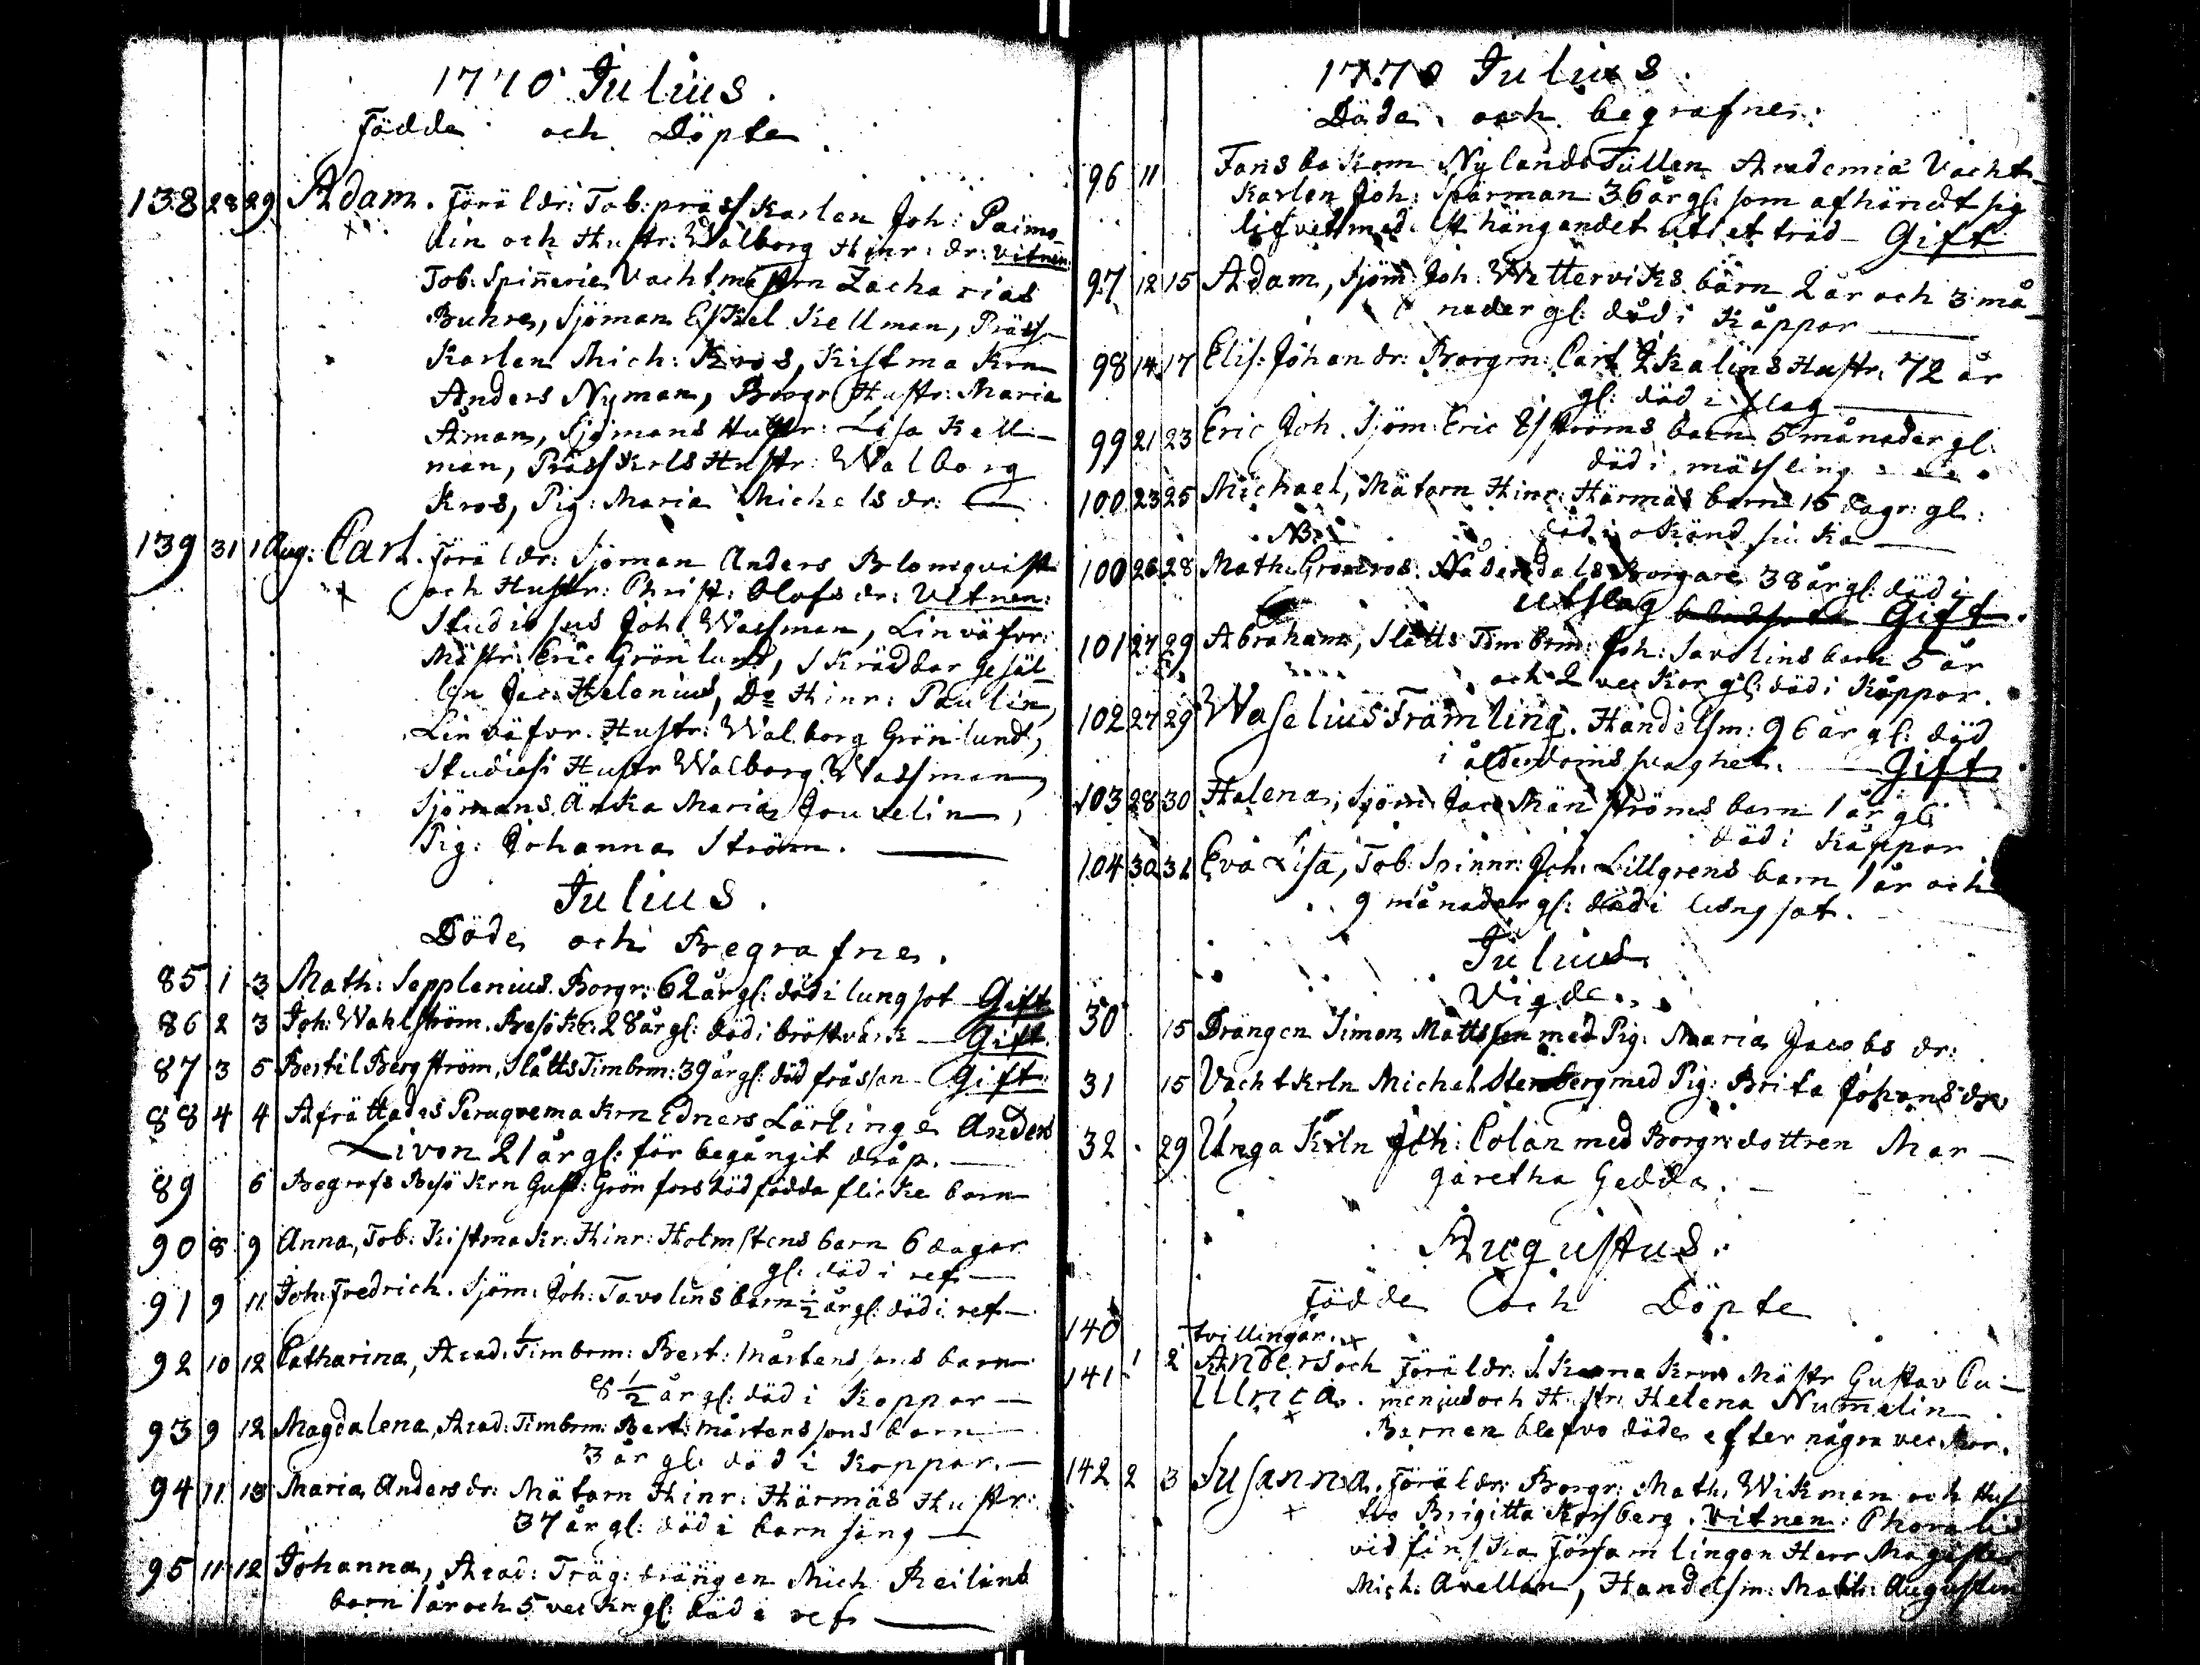 1770 Julius.
Födde och Döpte
138 28 29 Adam. Föräldr: Tob: präss Karlen Joh: Paimo-
lin och Hustr: Walborg Hinr: dr: vitnen:
Tob: Spinnerie Vachtmestarn Zacharias
Buhre, Sjöman Eskel Kellman, Präss-
Karlen Mich: Kros, Kistmakrn
Anders Nyman, Borgr Hustr: Maria
Åman, Sjömans Hustr: Lisa Kell-
man, Präss Krls Hustr: Walborg
Kros, Pig: Maria Michelsdr:
139 31 1 Aug: Carl. Föräldr: Sjöman Anders Blomqvist
och Hustr: Christ: Olofsdr: Vitnen:
Studiosus Joh: Wassman, Linväfvr:
Mästr: Eric Grönlund, Skräddar Gesäl-
len Jac: Helenius, Do Hinr: Paulin,
Linväfvr. Hustr: Walborg Grönlund,
Studiosi Hustr Walborg Wassman,
Sjömans Änka Maria Jouvelin,
Pig: Johanna Ström.
Julius.
Döde och Begrafne.
85 1 3 Math: Sepplenius. Borgr: 62 år gl: död i lungsot Gift
86 2 3 Joh: Wahlström. Besökr: 28 år gl: död i bröstvärk Gift
87 3 5 Bertil Bergström, Slåtts Timbrm: 39 år gl: död fråssan Gift
88 4 4 Afrättades Peruqvemakrn Edners Lärlinge Anders
Livon 21 år gl: för begångit dråp.
89 6 Begrofs Besökrn Gust: Grönfors dödfödda flicke barn
90 8 9 Anna, Tob: Kistmakr: Hinr: Holmstens barn 6 dagar
gl: död i ref
91 9 11 Joh: Fredrich. Sjöm: Joh: Tavolins barn 1/2 år gl: död i ref
92 10 12 Catharina, Acad: Timbrm: Bert: Mårtenssons barn
8 1/2 år gl: död i Koppor
93 9 12 Magdalena, Acad: Timbrm: Bert: Mårtenssons barn
3 år gl: död i Koppor.
94 11 13 Maria Andersdr: Mätarn Hinr: Härmäs Hustr:
37 år gl: död i barnsäng
95 11 12 Johanna, Acad: Träg: drängen Mich Reilins
barn 1 år och 5 veckr gl: död i ref
1770 Julius.
Döde och begrafne:
96 11 Fans bakom Nylands Tullen Academiæ Vacht-
Karlen Joh: Sparman 36 år gl: som afhändt sig
lifvet med hängandet uti et träd Gift
97 12 15 Adam, Sjöm: Joh: Wetterviks barn 2 år och 3 må-
nader gl: död i Kåppor
98 14 17 Elis: Johan dr: Borgrn: Carl Skalins Hustr: 72 år
gl: död i slag
99 21 23 Eric Joh. Sjöm: Eric Eströms barn 5 månader gl:
död i mässling
100 23 25 Michael, Mätarn Hinr: Härmäs barn 15 dagr: gl:
NB: död i okänd siuka
100 26 28 Math: Grönros. Nådendals Borgare 38 år gl: död i
utslag Gift.
101 27 29 Abraham, Slåtts Timbrm: Joh: Savolins barn 5 år
och 2 veckor gl: död i Kåppor.
102 27 29 Waselius Främling. Handelsm: 96 år gl: död
i ålderdoms svaghet. Gift
103 28 30 Helena, Sjöm: Jac: Månströms barn 1 år gl:
död i Kåppor
104 30 31 Eva Lisa, Tob: Spinnr: Joh: Lillgrens barn 1 år och
9 månader gl: död i lungsot.
Julius
Vigde.
30 15 Drängen Simon Mattsson med Pig: Maria Jacobs dr:
31 15 Vachtkrln Michel Stenberg med Pig: Brita Johansdr
32 29 Unga Krln Joh: Colan med Borgr: dottren Mar-
garetha Gedda.
Augustus.
Födde och Döpte
140 tvillingar.
141 1 2 Anders och Föräldr: Mästr Gustav Cu-
Ulrica. menius och Hustr: Helena Numelin
Barnen blefvo döde efter några veckor.
142 2 3 Susanna. Föräldr: Borgr: Math: Wikman och Hus-
tro Brigitta Korsberg. Vitnen:
vid finska Församlingen Herr Magister
Mich: Avellan, Handelsm: Math: Augustin